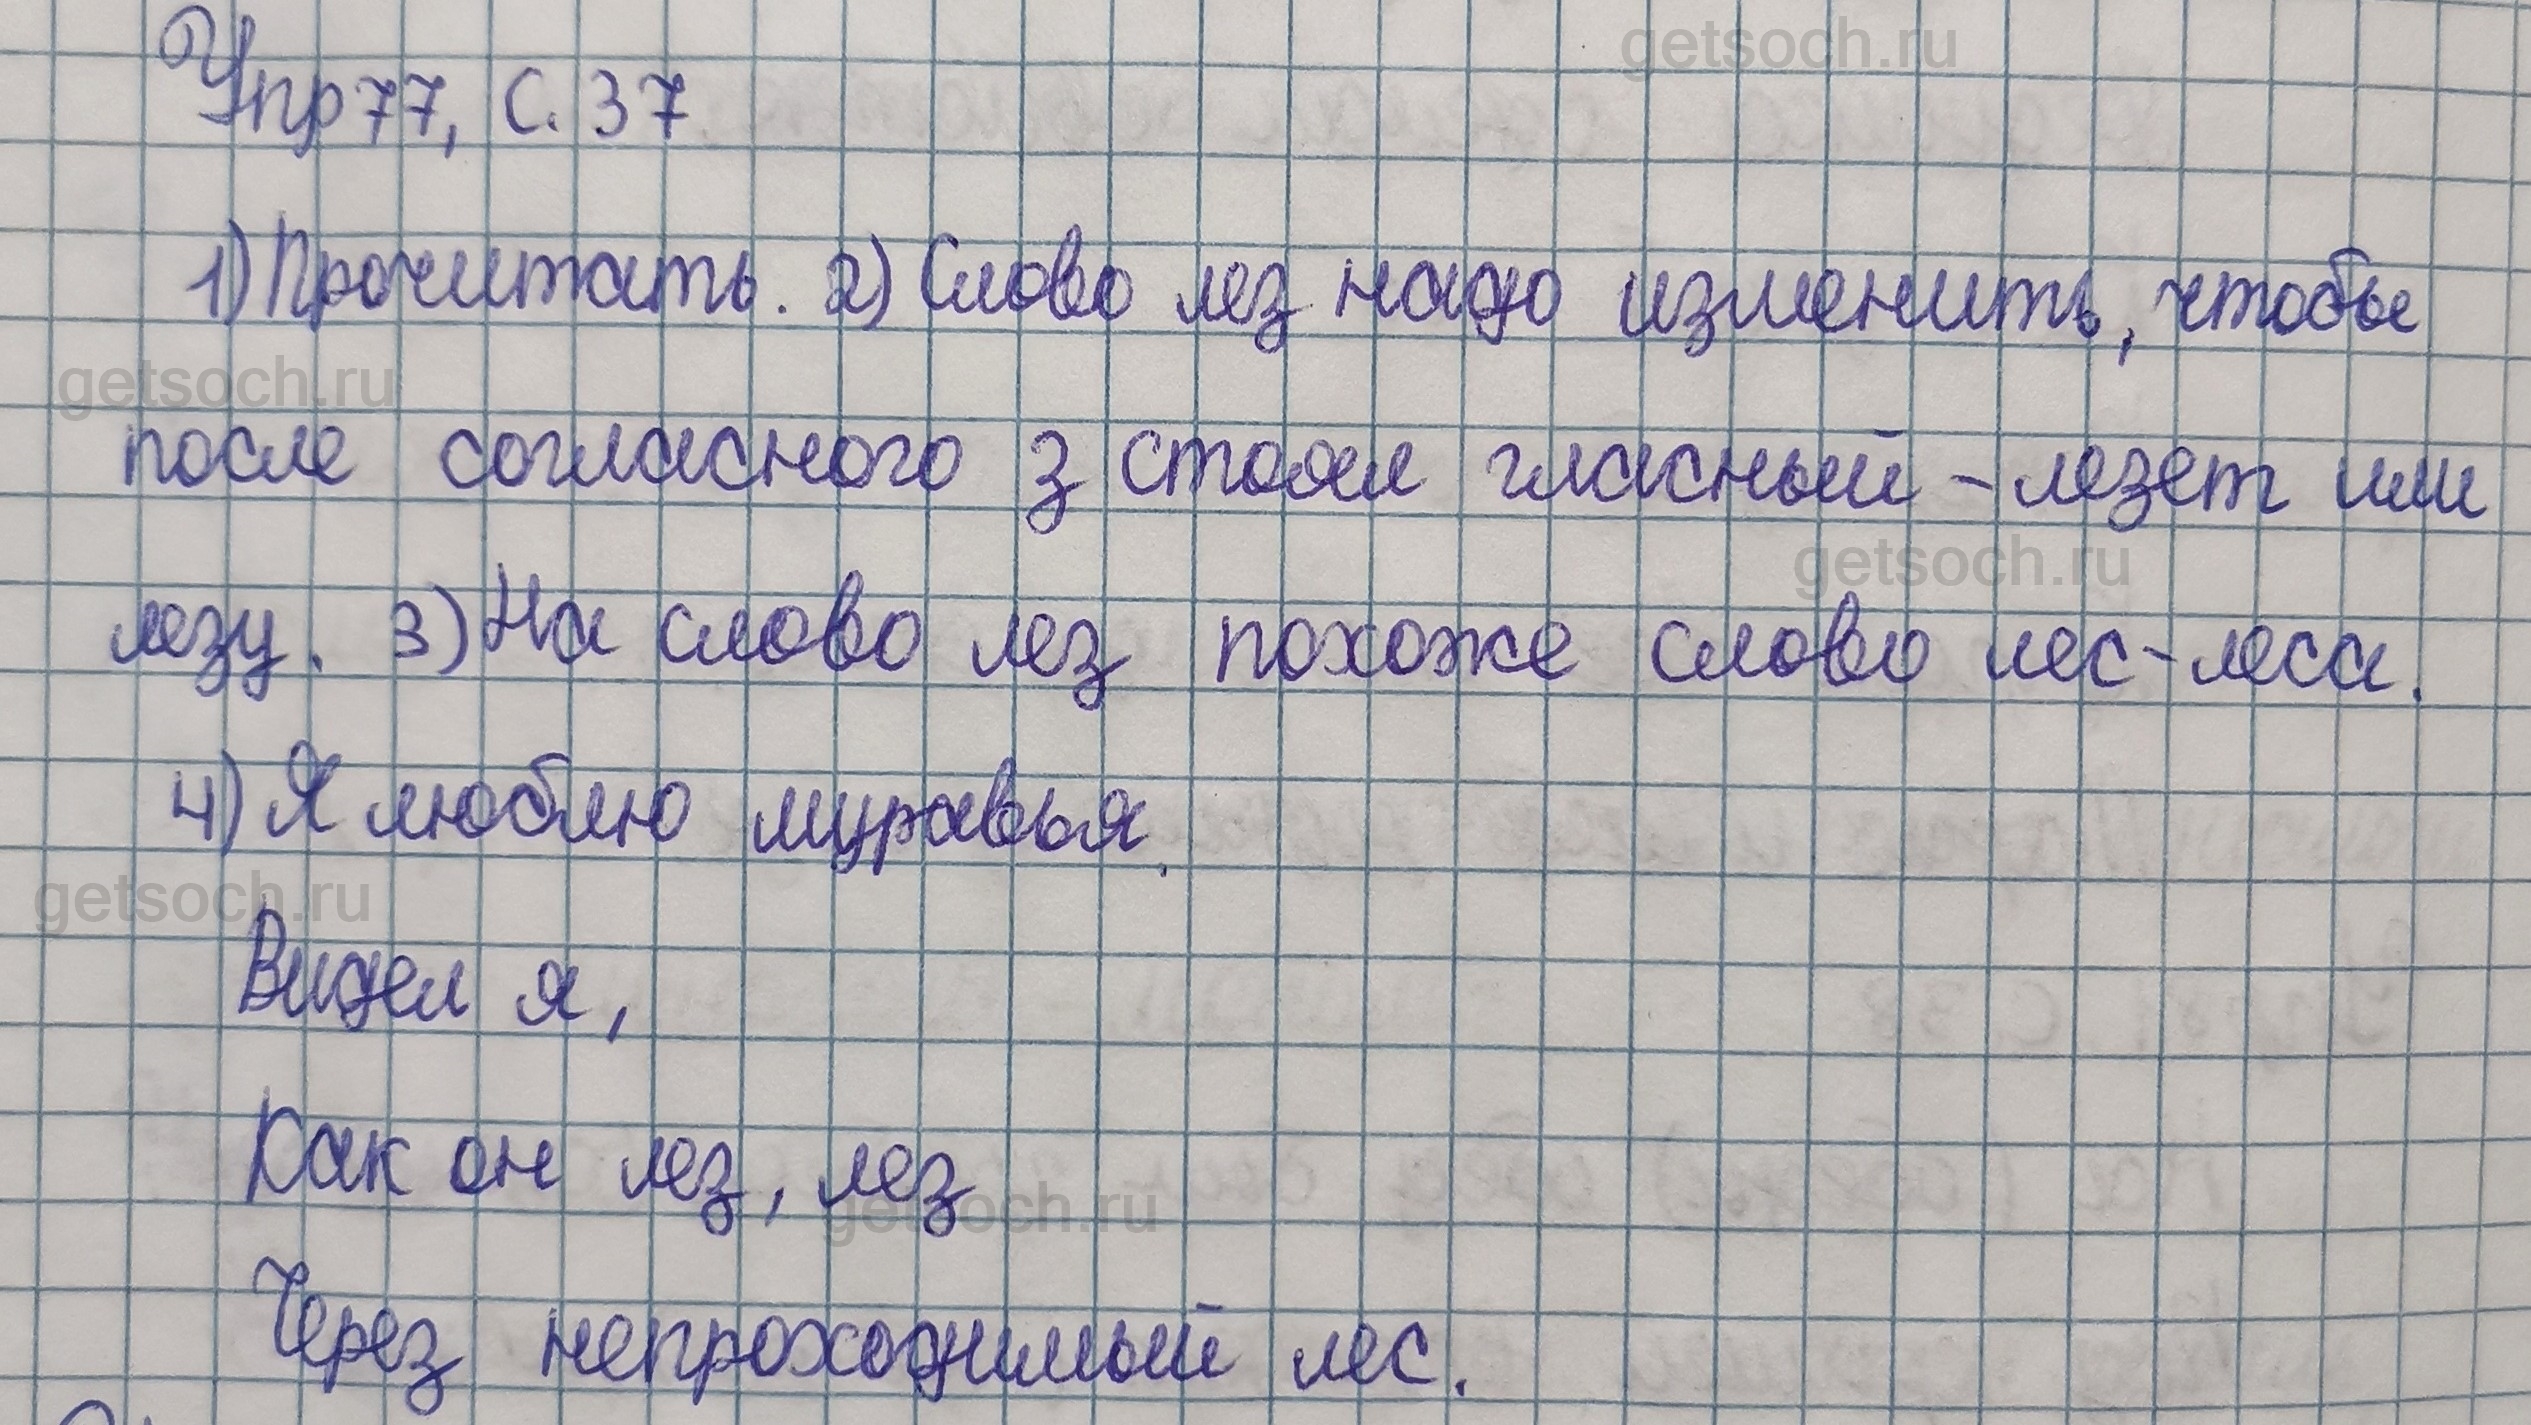 getsoch.ru
Упр 77, С. 37
1) Прочитать. 2) Слово лез надо изменить, чтобы
getsoch.ru
после согласного з стоял гласный - лезет или
getsoch.ru
лезу. 3) На слово лез похоже слово лес - леса.
4) Я люблю муравья.
getsoch.ru
Видел я,
Как он лез, лез
getsoch.ru
Через непроходимый лес.